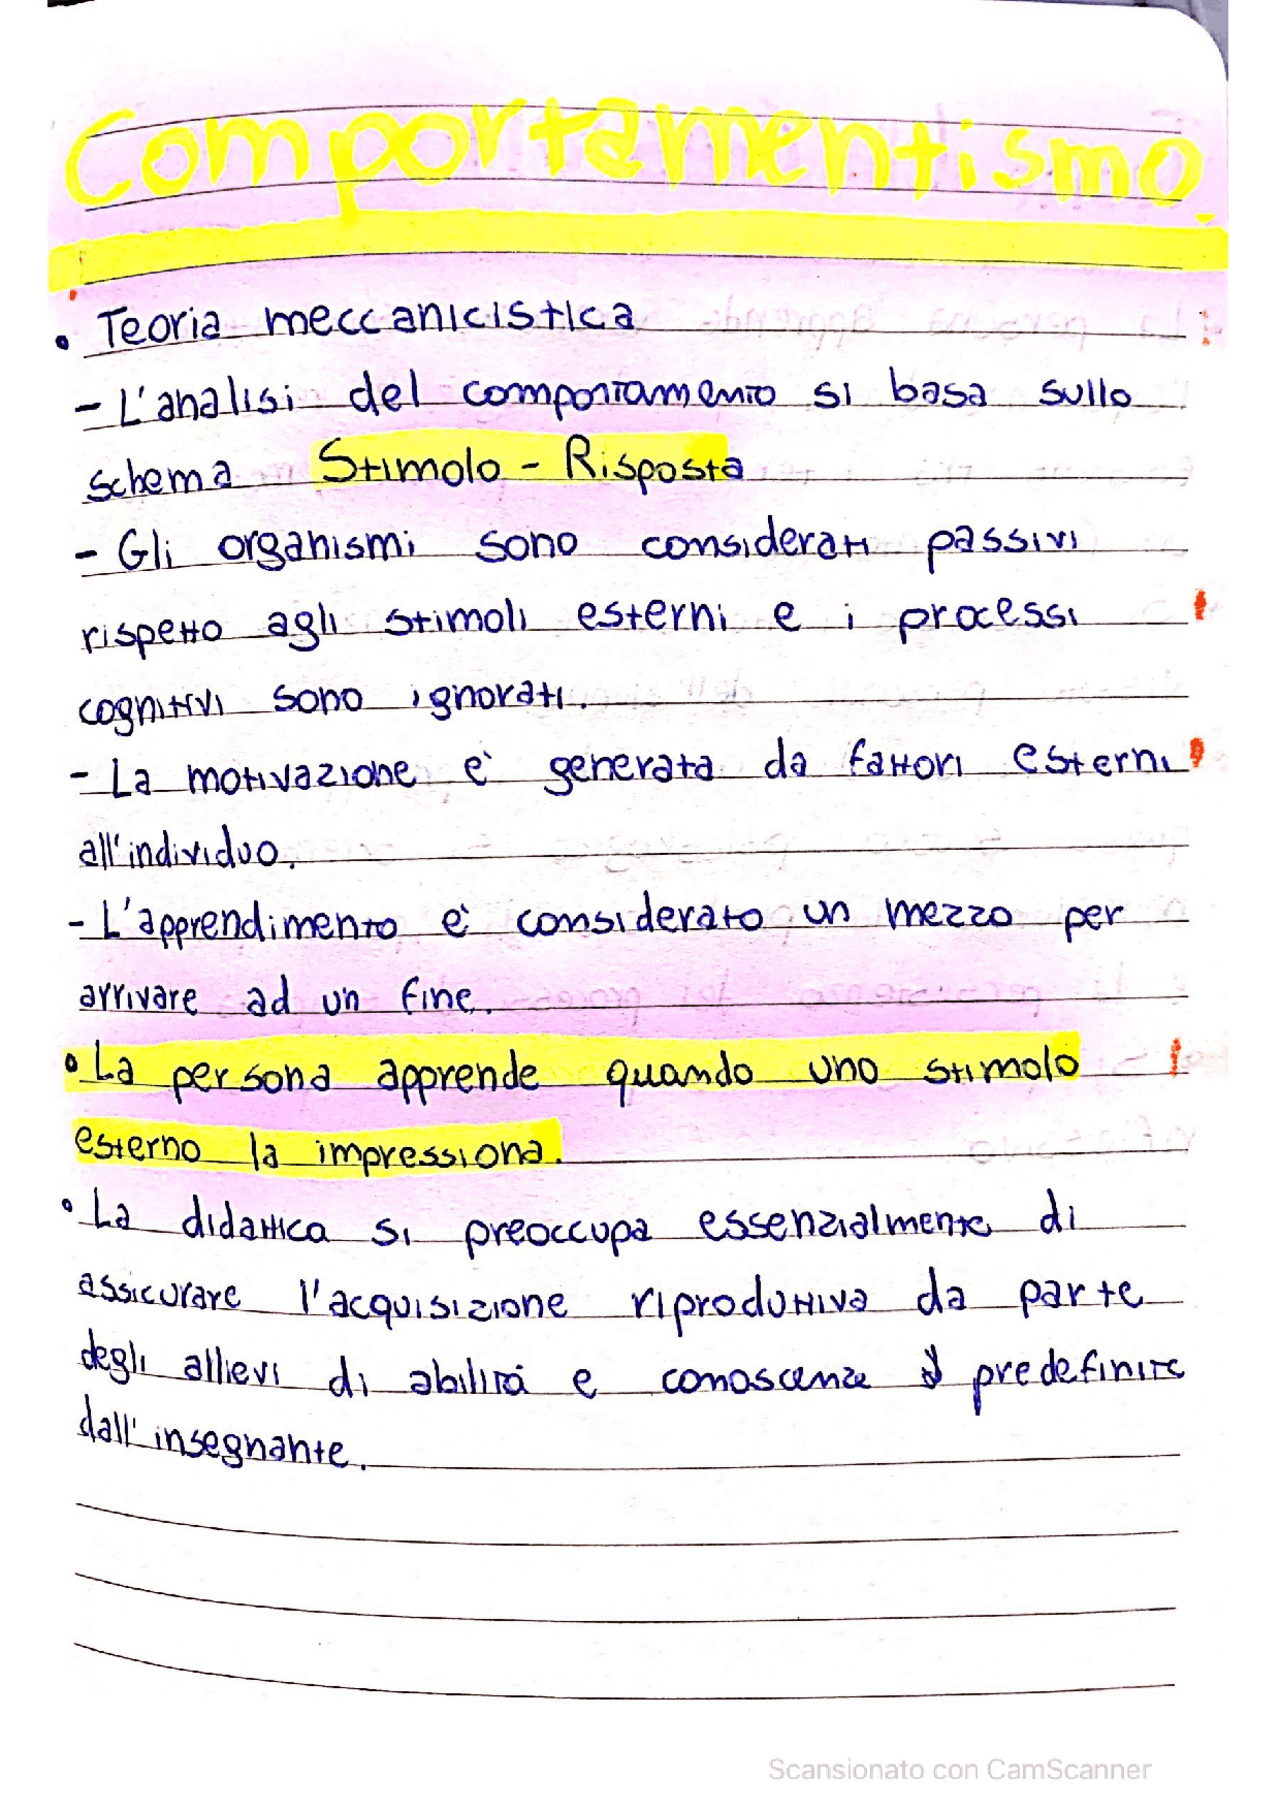 Comportamentismo
• Teoria meccanicistica
- L'analisi del comportamento si basa sullo
schema Stimolo - Risposta
- Gli organismi sono considerati passivi
rispetto agli stimoli esterni e i processi
cognitivi sono ignorati.
- La motivazione e' generata da fattori esterni
all'individuo.
- L'apprendimento e' considerato un mezzo per
arrivare ad un fine.
• La persona apprende quando uno stimolo
esterno la impressiona.
• La didattica si preoccupa essenzialmente di
assicurare l'acquisizione riproduttiva da parte
degli allievi di abilità e conoscenze predefinite
dall'insegnante.
Scansionato con CamScanner